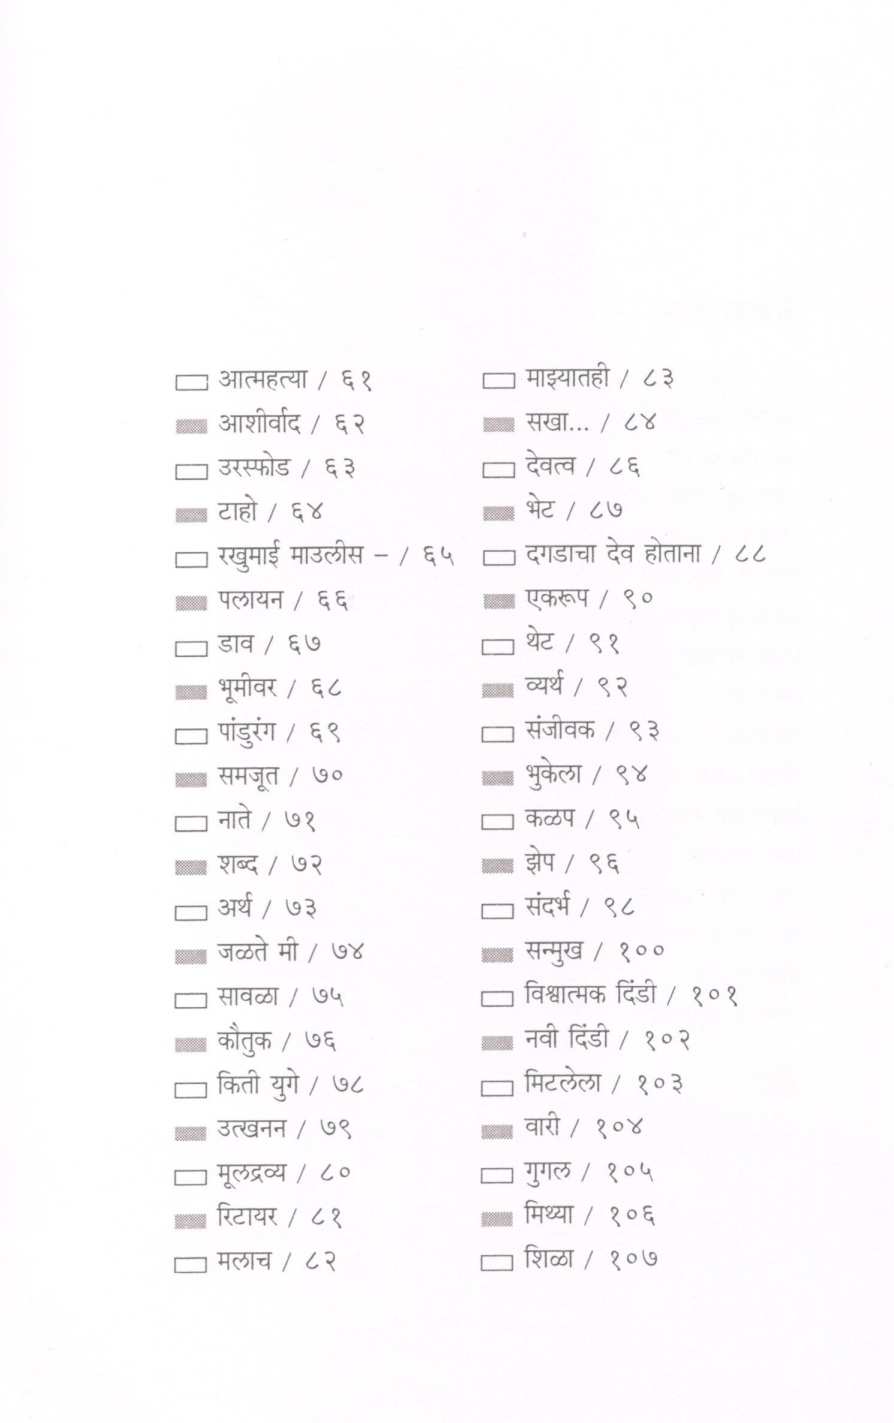 आत्महत्या / ६१
आशीर्वाद / ६२
उरस्फोड / ६३
टाहो / ६४
रखुमाई माउलीस – / ६५
पलायन / ६६
डाव / ६७
भूमीवर / ६८
पांडुरंग / ६९
समजूत / ७०
नाते / ७१
शब्द / ७२
अर्थ / ७३
जळते मी / ७४
सावळा / ७५
कौतुक / ७६
किती युगे / ७८
उत्खनन / ७९
मूलद्रव्य / ८०
रिटायर / ८१
मलाच / ८२
माझ्यातही / ८३
सखा... / ८४
देवत्व / ८६
भेट / ८७
दगडाचा देव होताना / ८८
एकरूप / ९०
थेट / ९१
व्यर्थ / ९२
संजीवक / ९३
भुकेला / ९४
कळप / ९५
झेप / ९६
संदर्भ / ९८
सन्मुख / १००
विश्वात्मक दिंडी / १०१
नवी दिंडी / १०२
मिटलेला / १०३
वारी / १०४
गुगल / १०५
मिथ्या / १०६
शिळा / १०७